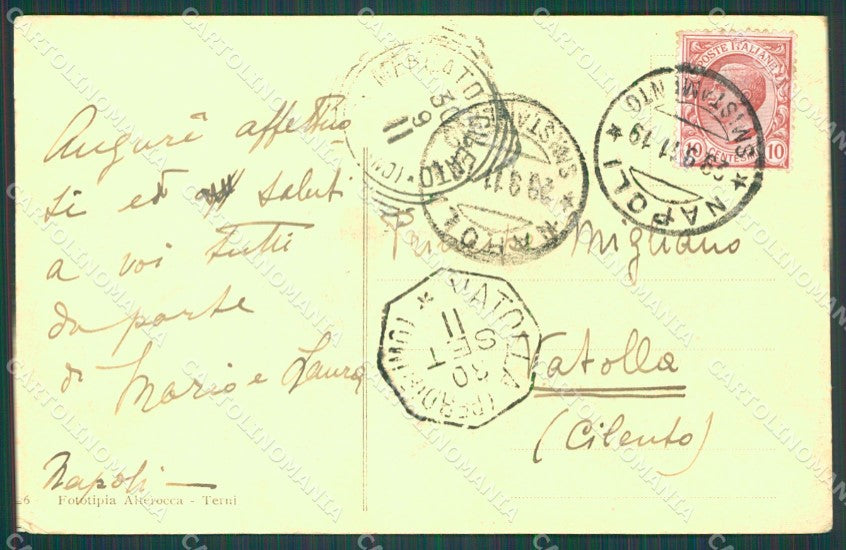 Augurî affettuo
si ed saluti
a voi tutti
da parte
di Mario e Laura
Napoli —
26 Fototipia Alterocca - Terni
POSTE ITALIANE
10
NAPOLI
SMISTAMENTO
29.9.11 19
NAPOLI
SMISTA
29.9.11
30
9
11
VATOLLA (PERDIFUMO)
30
SET
11
Migliano
Vatolla
(Cilento)
CARTOLINOMANIA